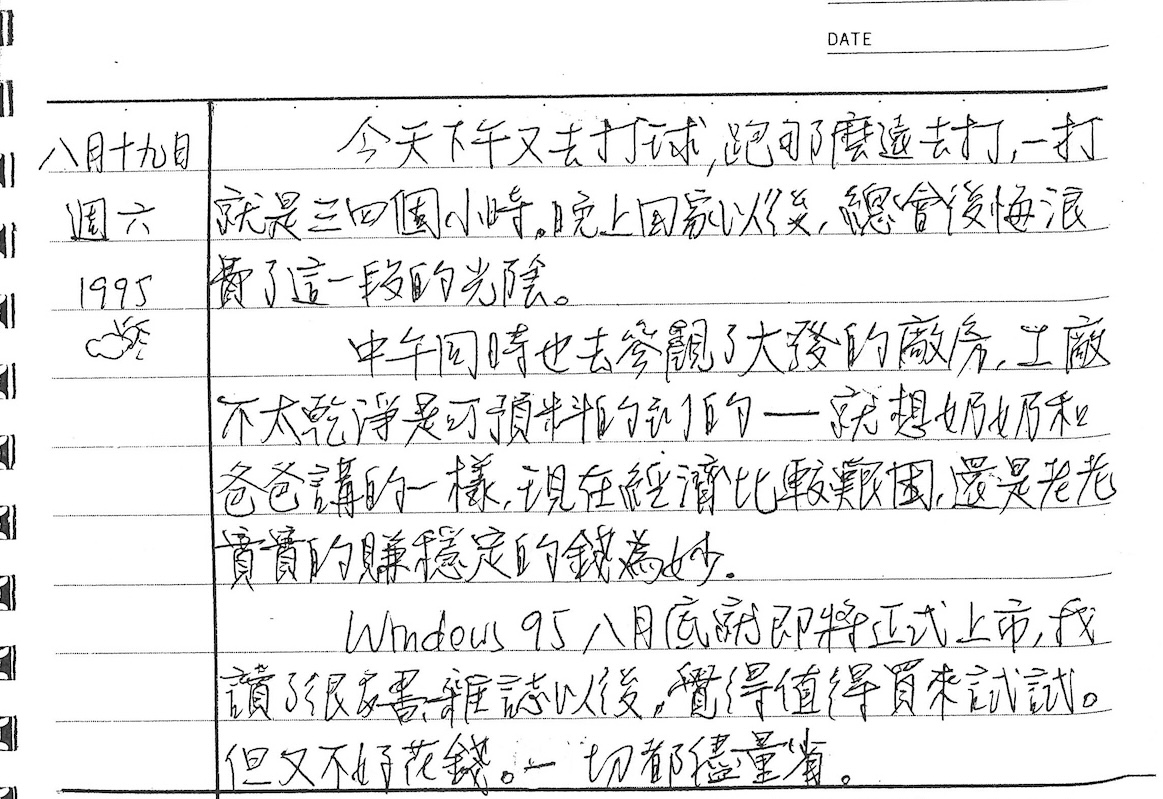 DATE
八月十九日
週六
1995
今天下午又去打球,跑那麼遠去打,一打
就是三四個小時。晚上回家以後,總會後悔浪
費了這一段的光陰。
中午同時也去參觀了大發的廠房,工廠
不太乾淨是可預料的到的——就想奶奶和
爸爸講的一樣,現在經濟比較艱困,還是老老
實實的賺穩定的錢為妙.
Windows 95 八月底就即將正式上市,我
讀了很多書、雜誌以後,覺得值得買來試試。
但又不好花錢。一切都儘量省。